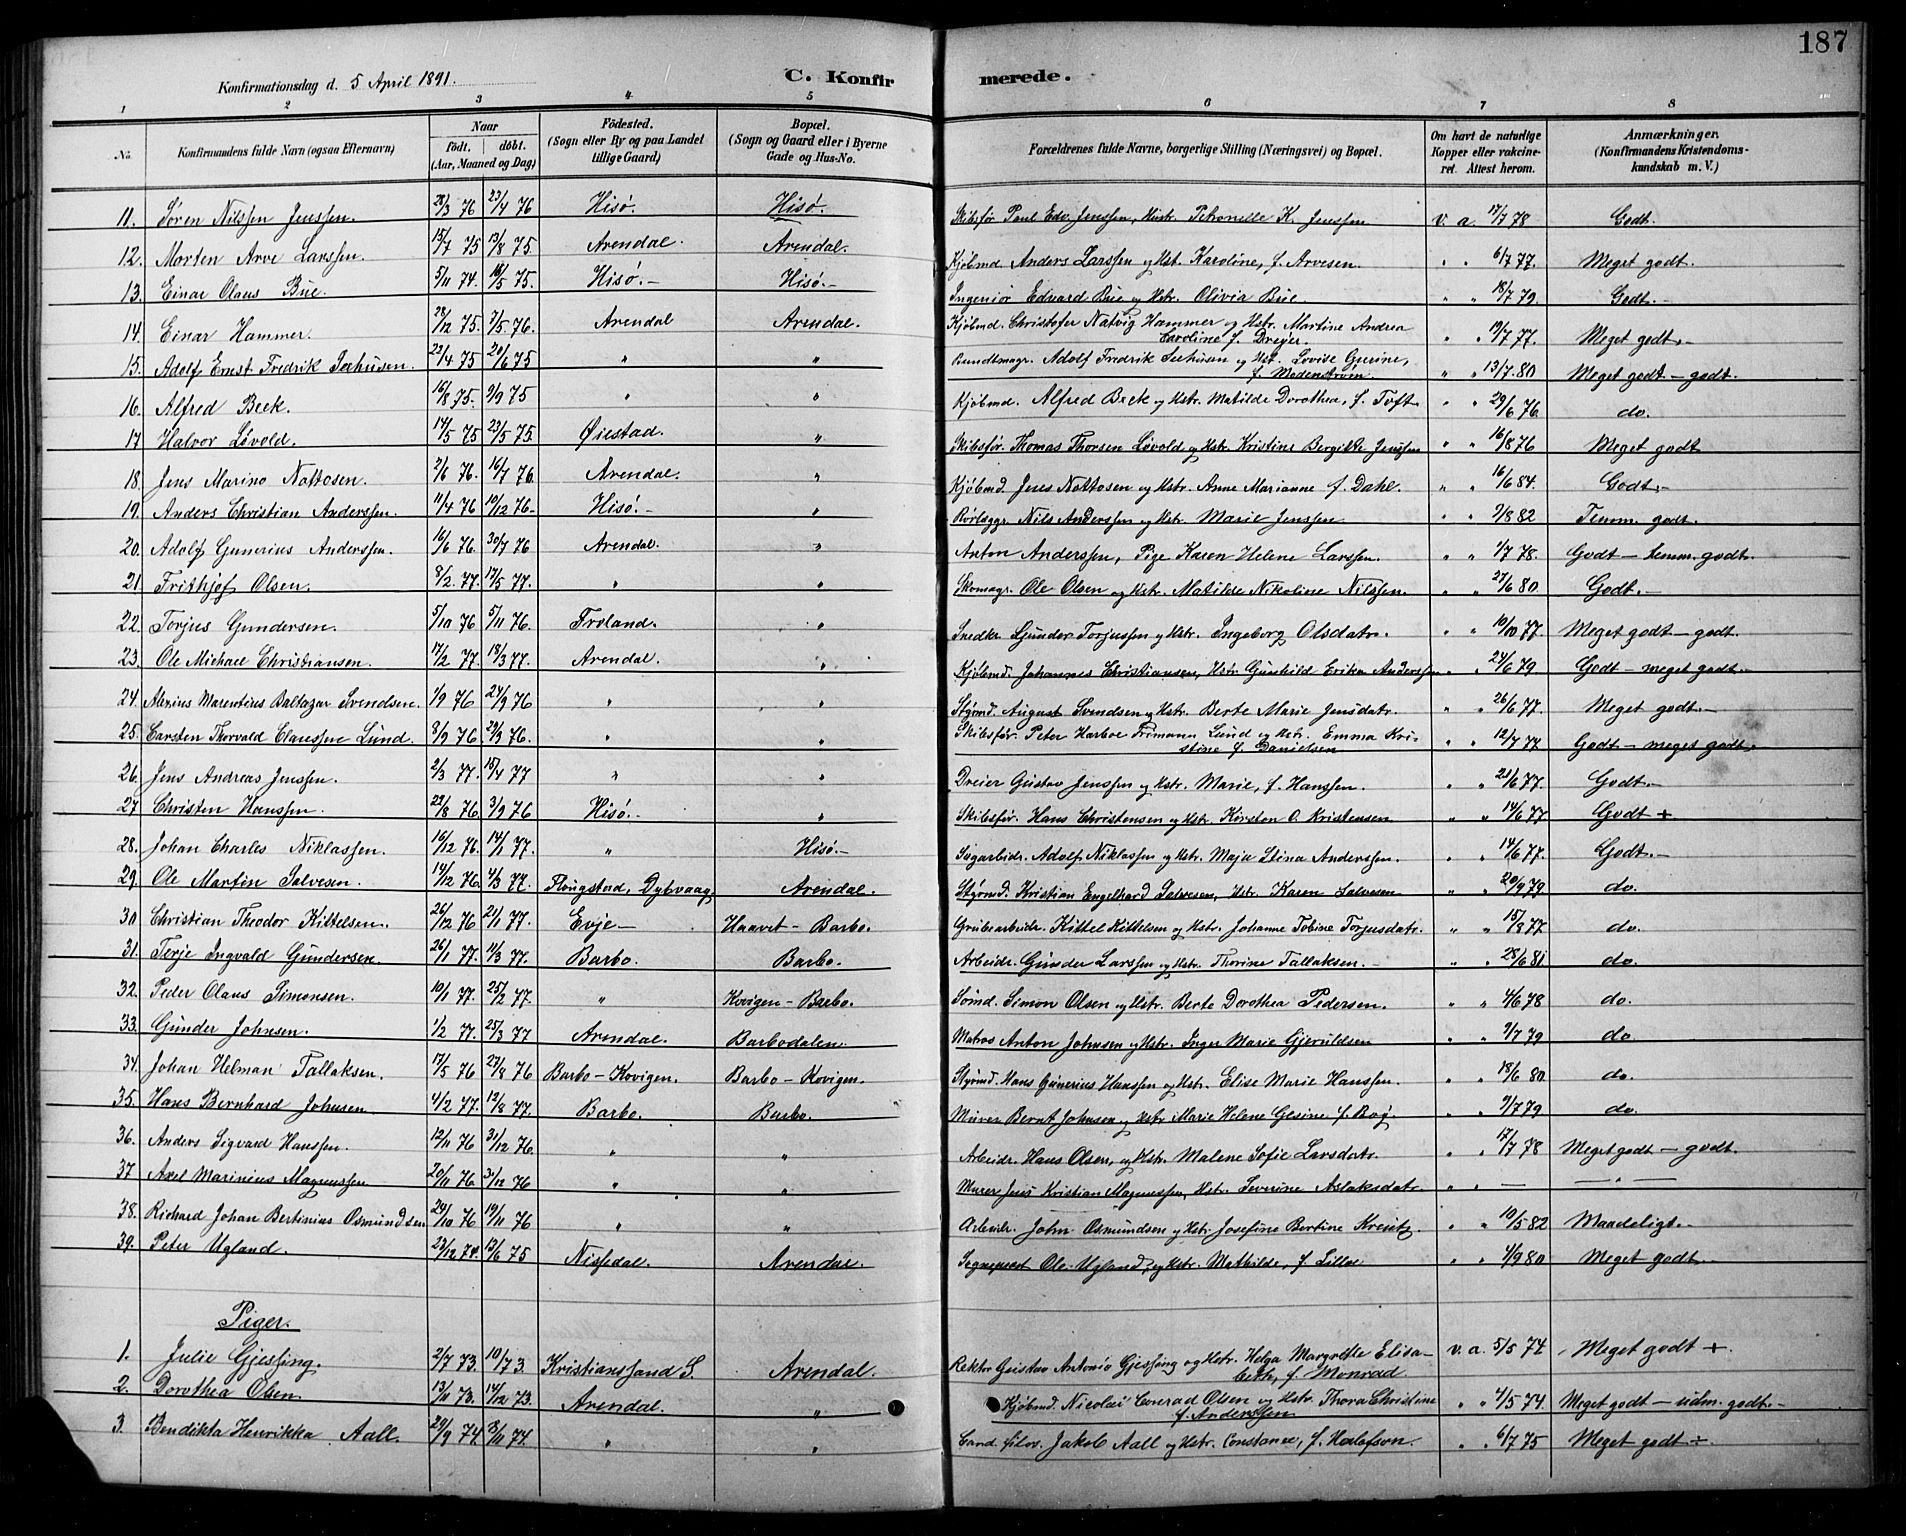 187
Konfirmationsdag d. 5 April 1891.
C. Konfirmerede.
1 2 3 4 5 6 7 8
No. Konfirmandens fulde Navn (ogsaa Efternavn) Naar født. døbt. (Aar, Maaned og Dag) Fødested. (Sogn eller By og paa Landet tillige Gaard) Bopæl. (Sogn og Gaard eller i Byerne Gade og Hus-No. Forældrenes fulde Navne, borgerlige Stilling (Næringsvei) og Bopæl. Om havt de naturlige Kopper eller vakcineret. Attest herom. Anmærkninger. (Konfirmandens Kristendomskundskab m. V.)
11. Søren Nilssen Jenssen. 28/3 76 23/4 76 Hisø. Hisø. Skibsfør Paul Edv. Jenssen, Hustr. Petronelle K. Jenssen v. a. 17/7 78 Godt.
12. Morten Arve Larssen. 15/7 75 13/8 75 Arendal. Arendal. Kjøbmd. Anders Larssen og Hst. Karoline, f. Arvesen. " " 6/7 77. Meget godt.
13. Einar Olaus Bue. 5/11 74. 16/5 75. Hisø.- Hisø.- Ingeniør Edvard Bue og Hstr. Olivia Bue. " " 18/7 79. Godt.-
14. Einar Hammer. 28/12 75. 7/5 76. Arendal Arendal. Kjøbmd. Christofer Natvig Hammer og Hstr. Martine Andrea Caroline f. Dreyer. " " 19/7 77. Meget godt.-
15. Adolf Ernst Fredrik Seehusen. 22/4 75 20/6 75 " " Bundtmagr. Adolf Fredrik Seehusen og Hst. Lovise Gurine, f. Modenstrøm. " " 13/7 80 Meget godt - godt.
16. Alfred Beck. 16/8 75. 9/9 75 " " Kjøbmd. Alfred Beck og Hstr. Matilde Dorothea, f. Toft " " 29/6 76. do.
17. Halvor Løvold. 14/5 75 23/5 75. Øiestad. " Skibsfør. Thomas Thorsen Løvold og Hstr. Kristine Bergitte Jenssen " " 16/8 76 Meget godt
18. Jens Marino Nottosen. 2/6 76. 16/7 76. Arendal. " Kjøbmd. Jens Nottosen og Hstr. Anne Marianne f. Dahl. " " 16/6 84. Godt.-
19. Anders Christian Anderssen. 11/4 76 10/12 76- Hisø.- " Rørlæggr. Nils Anderssen og Hstr. Marie Jenssen " " 9/8 82 Temm. godt.
20. Adolf Gunerius Anderssen. 16/6 76. 30/7 76 Arendal. " Anton Anderssen, Pige Karen Helene Larssen. " " 1/7 78. Godt - temm. godt.
21 Frithjof Olsen. 8/2. 77. 17/5 77. " " Skomagr. Ole Olsen og Hstr. Matilde Nikoline Nilssen. " " 27/6 80 Godt.-
22. Torjus Gundersen. 5/10 76 5/11 76. Froland. " Snedkr. Gunder Torjussen og Hstr. Ingeborg Olsdatr. " " 10/10 77. Meget godt - godt.
23. Ole Michael Christiansen. 17/2 77. 18/3 77. Arendal. " Kjøbmd. Johannes Christiansen, Hstr. Gunhild Erika Anderssen " " 24/6 79 Godt - meget godt.-
24. Alexius Marentius Baltazar Svendsen. 1/9 76 24/9 76 " " Styrmd. August Svendsen og Hstr. Berte Marie Jensdatr. " " 26/6 77. Meget godt.-
25. Carsten Thorvald Claussen Lund. 8/9 76 29/9 76. " " Skibsfør. Peter Harboe Frimann Lund og Hstr. Emma Kristine f. Danielsen " " 12/7 77 Godt - meget godt.
26. Jens Andreas Jenssen. 2/3 77. 15/4 77 " " Dreier Gustav Jenssen og Hstr. Marie, f. Hanssen. " " 21/6 77. Godt.-
27. Christen Hanssen. 22/8 76. 3/9 76 Hisø.- " Skibsfør. Hans Christensen og Hstr. Kirsten O. Kristensen " " 14/6 77 Godt +
28. Johan Charles Niklassen. 16/12 76. 14/1 77. " Hisø.- Sagarbeidr. Adolf Niklassen og Hstr. Maja Stina Anderssen. " " 14/6 77. Godt.-
29. Ole Martin Salvesen. 14/12 76. 4/3 77. Flougstad, Dybvaag Arendal. Styrmd. Kristian Engelhard Salvesen, Hstr. Karen Salvesen " " 20/9 79. do.
30 Christian Theodor Kittelsen. 26/12 76 21/1 77. Evje- Haavet - Barbo. Grubearbeidr. Kittel Kittelsen og Hstr. Johanne Tobine Torjusdatr. " " 15/8 77. do.
31. Terje Ingvald Gundersen. 26/1 77. 11/3 77. Barbo. Barbo. Arbeidr. Gunder Larssen og Hstr. Thorine Tallaksen.- " " 28/6 81. do.
32. Peder Olaus Simonsen. 10/1 77. 25/2 77. " Kovigen - Barbo. Sømd. Simon Olsen og Hstr. Berte Dorothea Pedersen. " " 4/6 78 do.
33. Gunder Johnsen. 1/2 77. 25/3 77 Arendal. Barbodalen. Matros Anton Johnsen og Hstr. Inger Marie Gjeruldsen " " 9/7 79 do.
34. Johan Helman Tallaksen. 17/5 76 27/8 76 Barbo - Kovigen. Barbo - Kovigen. Styrmd. Hans Gunerius Hanssen og Hstr. Elise Marie Hanssen. " " 18/6 80. do.
35. Hans Bernhard Johnsen 4/2 77. 12/8 77. Barbo. Barbo. Murer Bernt Johnsen og Hstr. Marie Helene Gesine f. Bøg " " 9/7 79 do.
36. Anders Sigvard Hanssen. 12/11 76 31/12 76. " " Arbeidr. Hans Olsen, og Hstr. Malene Sofie Larsdatr. " " 17/7 78 Meget godt - godt.
37 Axel Marinius Magnussen 20/11 76. 31/12 76 " " Murer Jens Kristian Magnussen, Hstr. Severine Aslaksdatr. " " — — " —
38. Richard Johan Bertinius Osmundsen 24/10 76 19/11 76 " " Arbeidr. John Osmundsen og Hstr. Josefine Bertine Kreutz. " " 10/5 82 Maadeligt.-
39. Peter Ugland. 23/12 74. 13/6 75 Nissedal. Arendal. Sogneprest Ole Ugland, og Hstr. Mathilde, f. Lilloe " " 4/9 80 Meget godt.-
Piger.
1. Julie Gjessing. 2/7 73. 10/7 3. Kristianssand S. Arendal. Rektor Gustav Antonio Gjessing og Hstr. Helga Margrethe Elisabeth, f. Monrad v. a. 5/5 74 Meget godt +.
2. Dorothea Olsen 13/11 73. 14/12 73. Arendal. " Kjøbmd. Nicolai Conrad Olsen og Hstr. Thora Christine f. Anderssen " " 4/5 74. Meget godt - udm. godt.-
3. Bendikta Henrikka Aall. 29/9 74. 8/11 74. " " Cand. filos. Jakob Aall og Hstr. Constance, f. Herlofson. " " 6/7 75 Meget godt ÷.